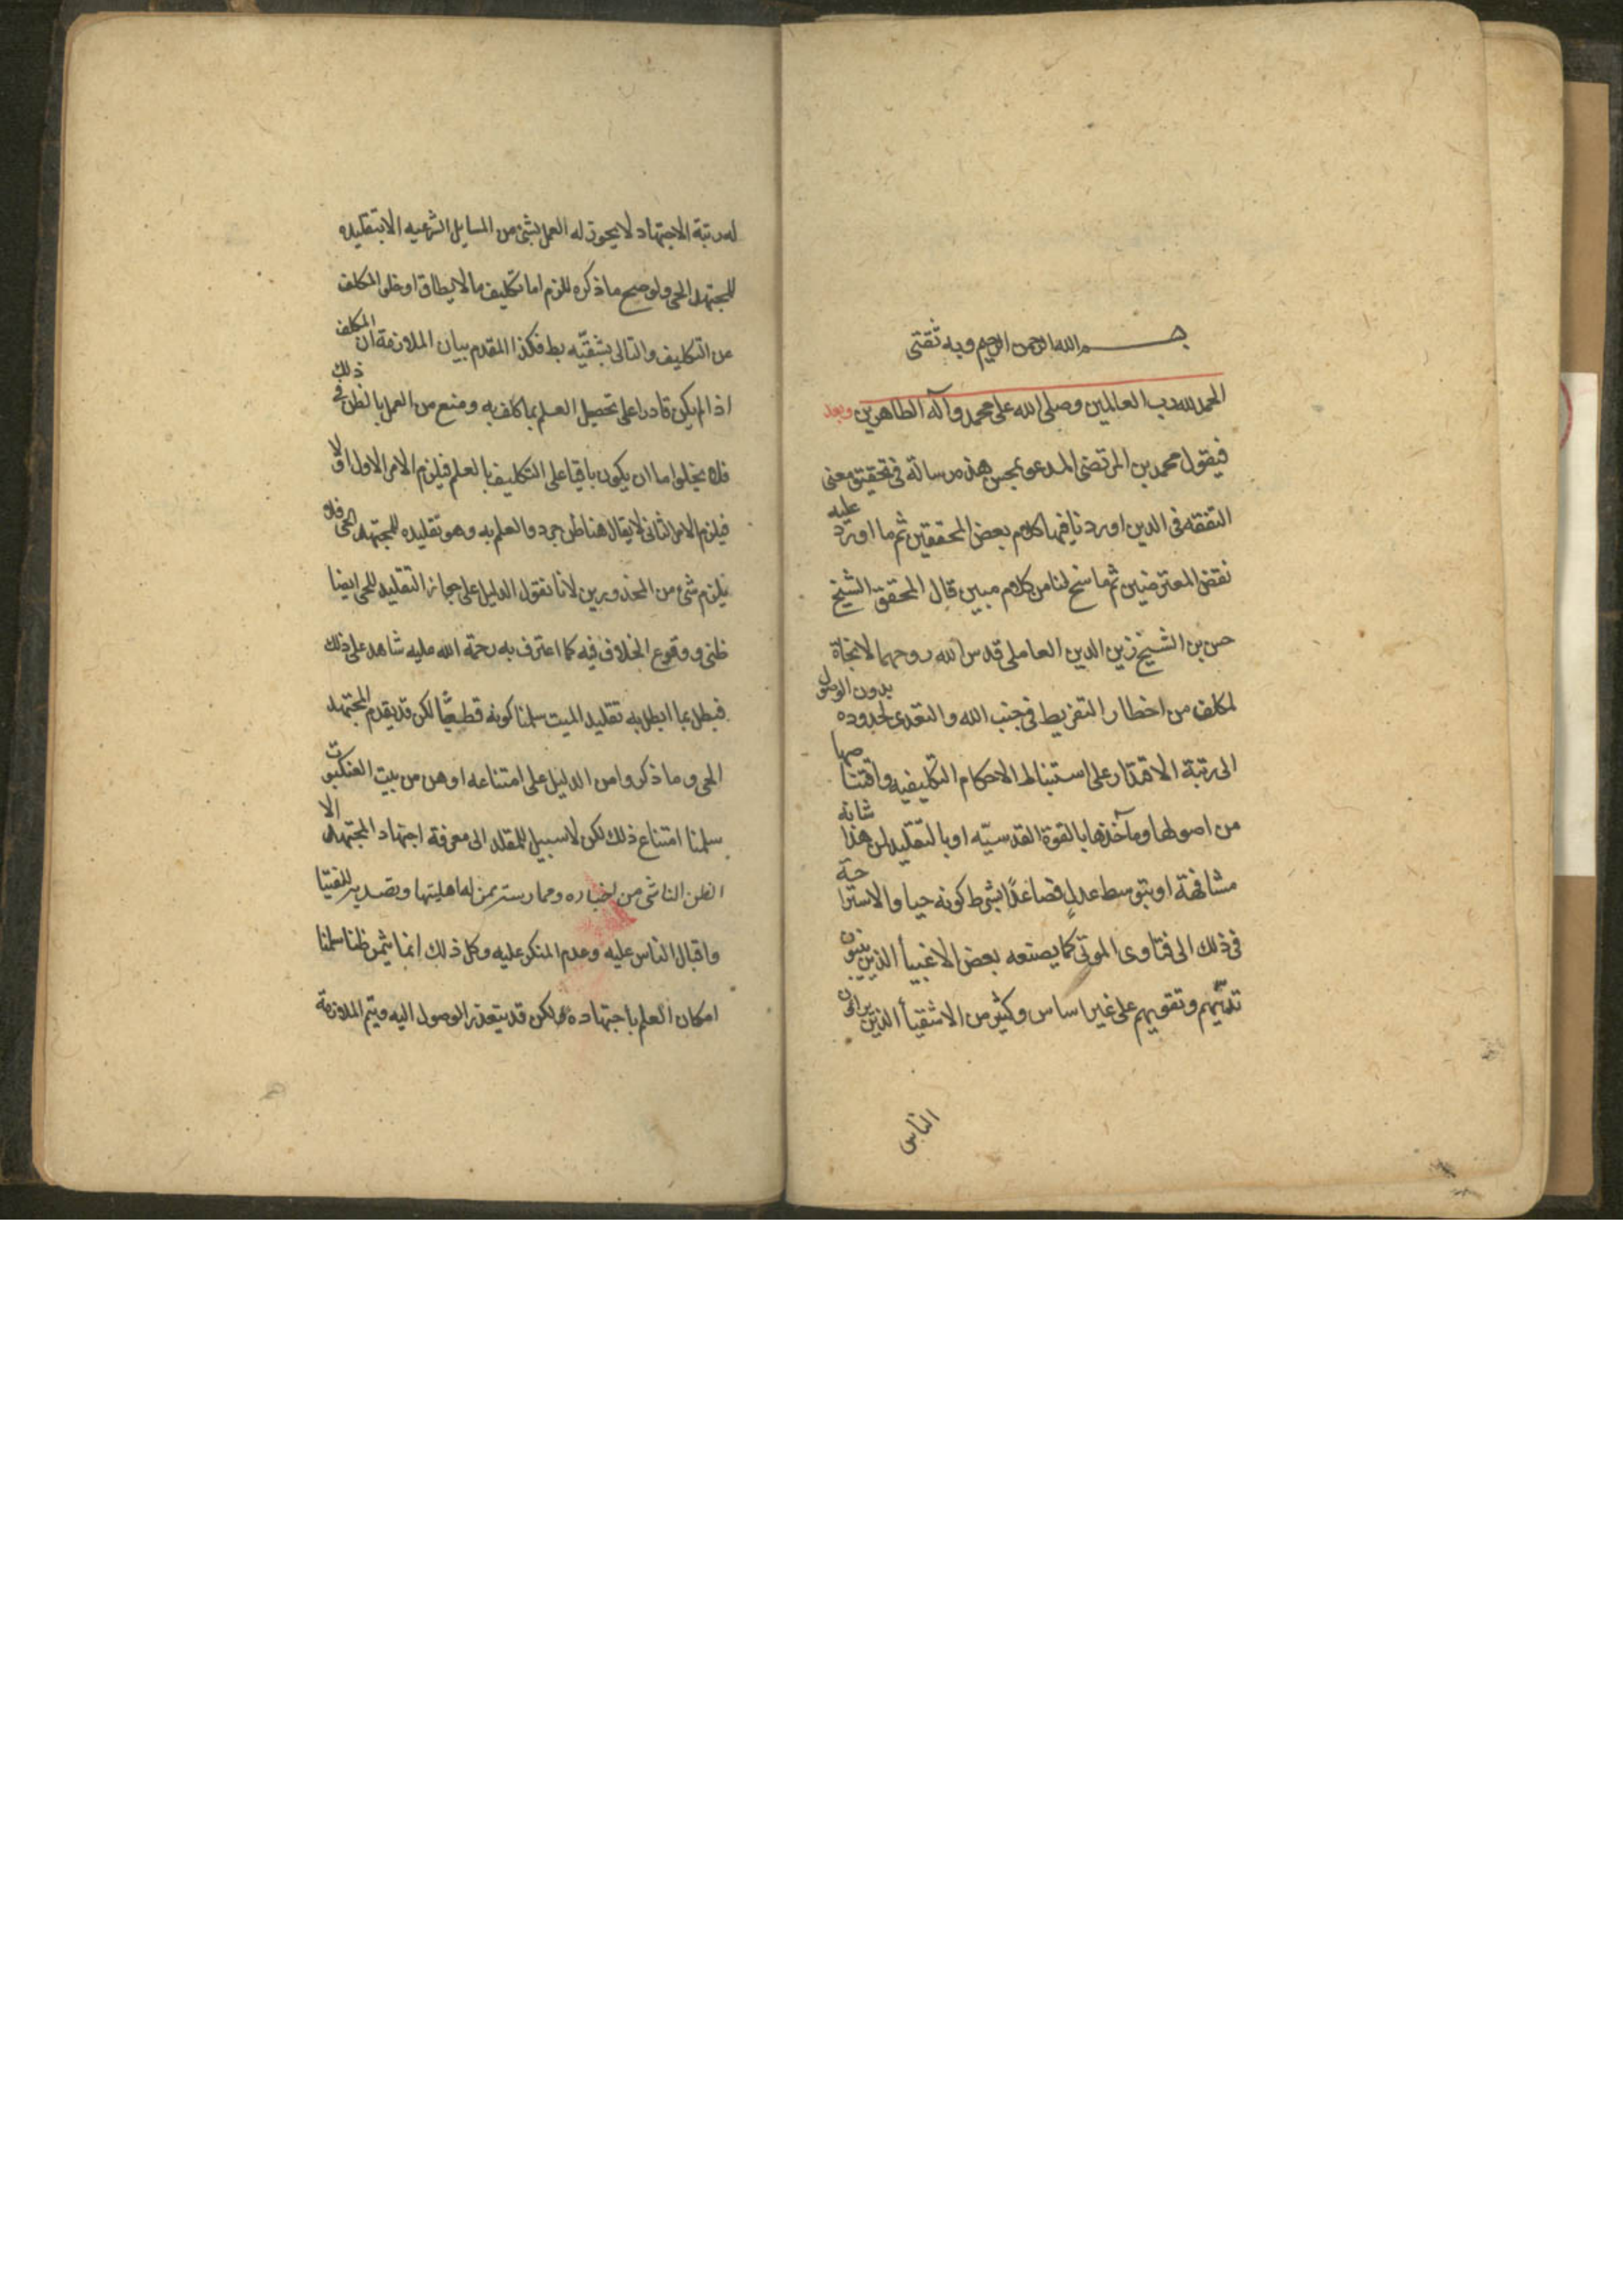 بسم الله الرحمن الرحيم وبه ثقتى
الحمد لله رب العالمين وصلى الله على محمد وآله الطاهرين وبعد
فيقول محمد بن المرتضى المدعو بمحسن هذه رسالة فى تحقيق معنى
التفقه فى الدين اوردنا فيها كلام بعض المحققين ثم ما اورد عليه
نقض المعترضين ثم ما سنح لنا من كلام مبين قال المحقق الشيخ
حسن بن الشيخ زين الدين العاملى قدس الله روحهما لا نجاة
لمكلف من اخطار التفريط فى جنب الله والتعدى لحدوده بدون الوصول
الى رتبة الاقتدار على استنباط الاحكام التكليفيه واقتناصها
من اصولها ومآخذها بالقوة القدسيّه او بالتقليد لمن هذا شانه
مشافهة او بتوسط عدل فصاعدًا بشرط كونه حيا والاستراحة
فى ذلك الى فتاوى الموتى كما يصنعه بعض الاغبيأ الذين يبنون
تديّنهم وتقويهم على غير اساس وكثير من الاشقيأ الذين يراؤن
الناس
له رتبة الاجتهاد لا يجوز له العمل بشئ من المسايل الشرعيه الا بتقليده
للمجتهد الحى ولو صح ما ذكره للزم اما تكليف ما لا يطاق او خلو المكلف
من التكليف والتالى بشقيّه بط فكذا المقدم بيان الملازمة ان المكلف
اذا لم يكن قادرا على تحصيل العلم بما كلف به ومنع من العمل بالظن فى ذلك
فلا يخلوا اما ان يكون باقيا على التكليف بالعلم فيلزم الامر الاول او لا
فيلزم الامر الثانى لا يقال هنا ظن جردوا العلم به وهو تقليده للمجتهد الحى فلا
يلزم شئ من المحذورين لانا نقول الدليل على جواز التقليد للحى ايضا
ظنى ووقوع الخلاف فيه كما اعترف به رحمة الله عليه شاهد على ذلك
فبطل بما ابطل به تقليد الميت سلمنا كونه قطيعًا لكن قد يقدم المجتهد
الحى وما ذكروا من الدليل على امتناعه اوهن من بيت العنكبوت
سلمنا امتناع ذلك لكن لا سبيل للمقلد الى معرفة اجتهاد المجتهد الا
الظن الناشى من اخباره وممارسته بمن له اهليتها وتصديره للفتيا
واقبال الناس عليه وعدم المنكر عليه وكل ذلك انما يثمر ظنا سلمنا
امكان العلم باجتهاده ولكن قد يتعذر الوصول اليه ويتم الملازمة